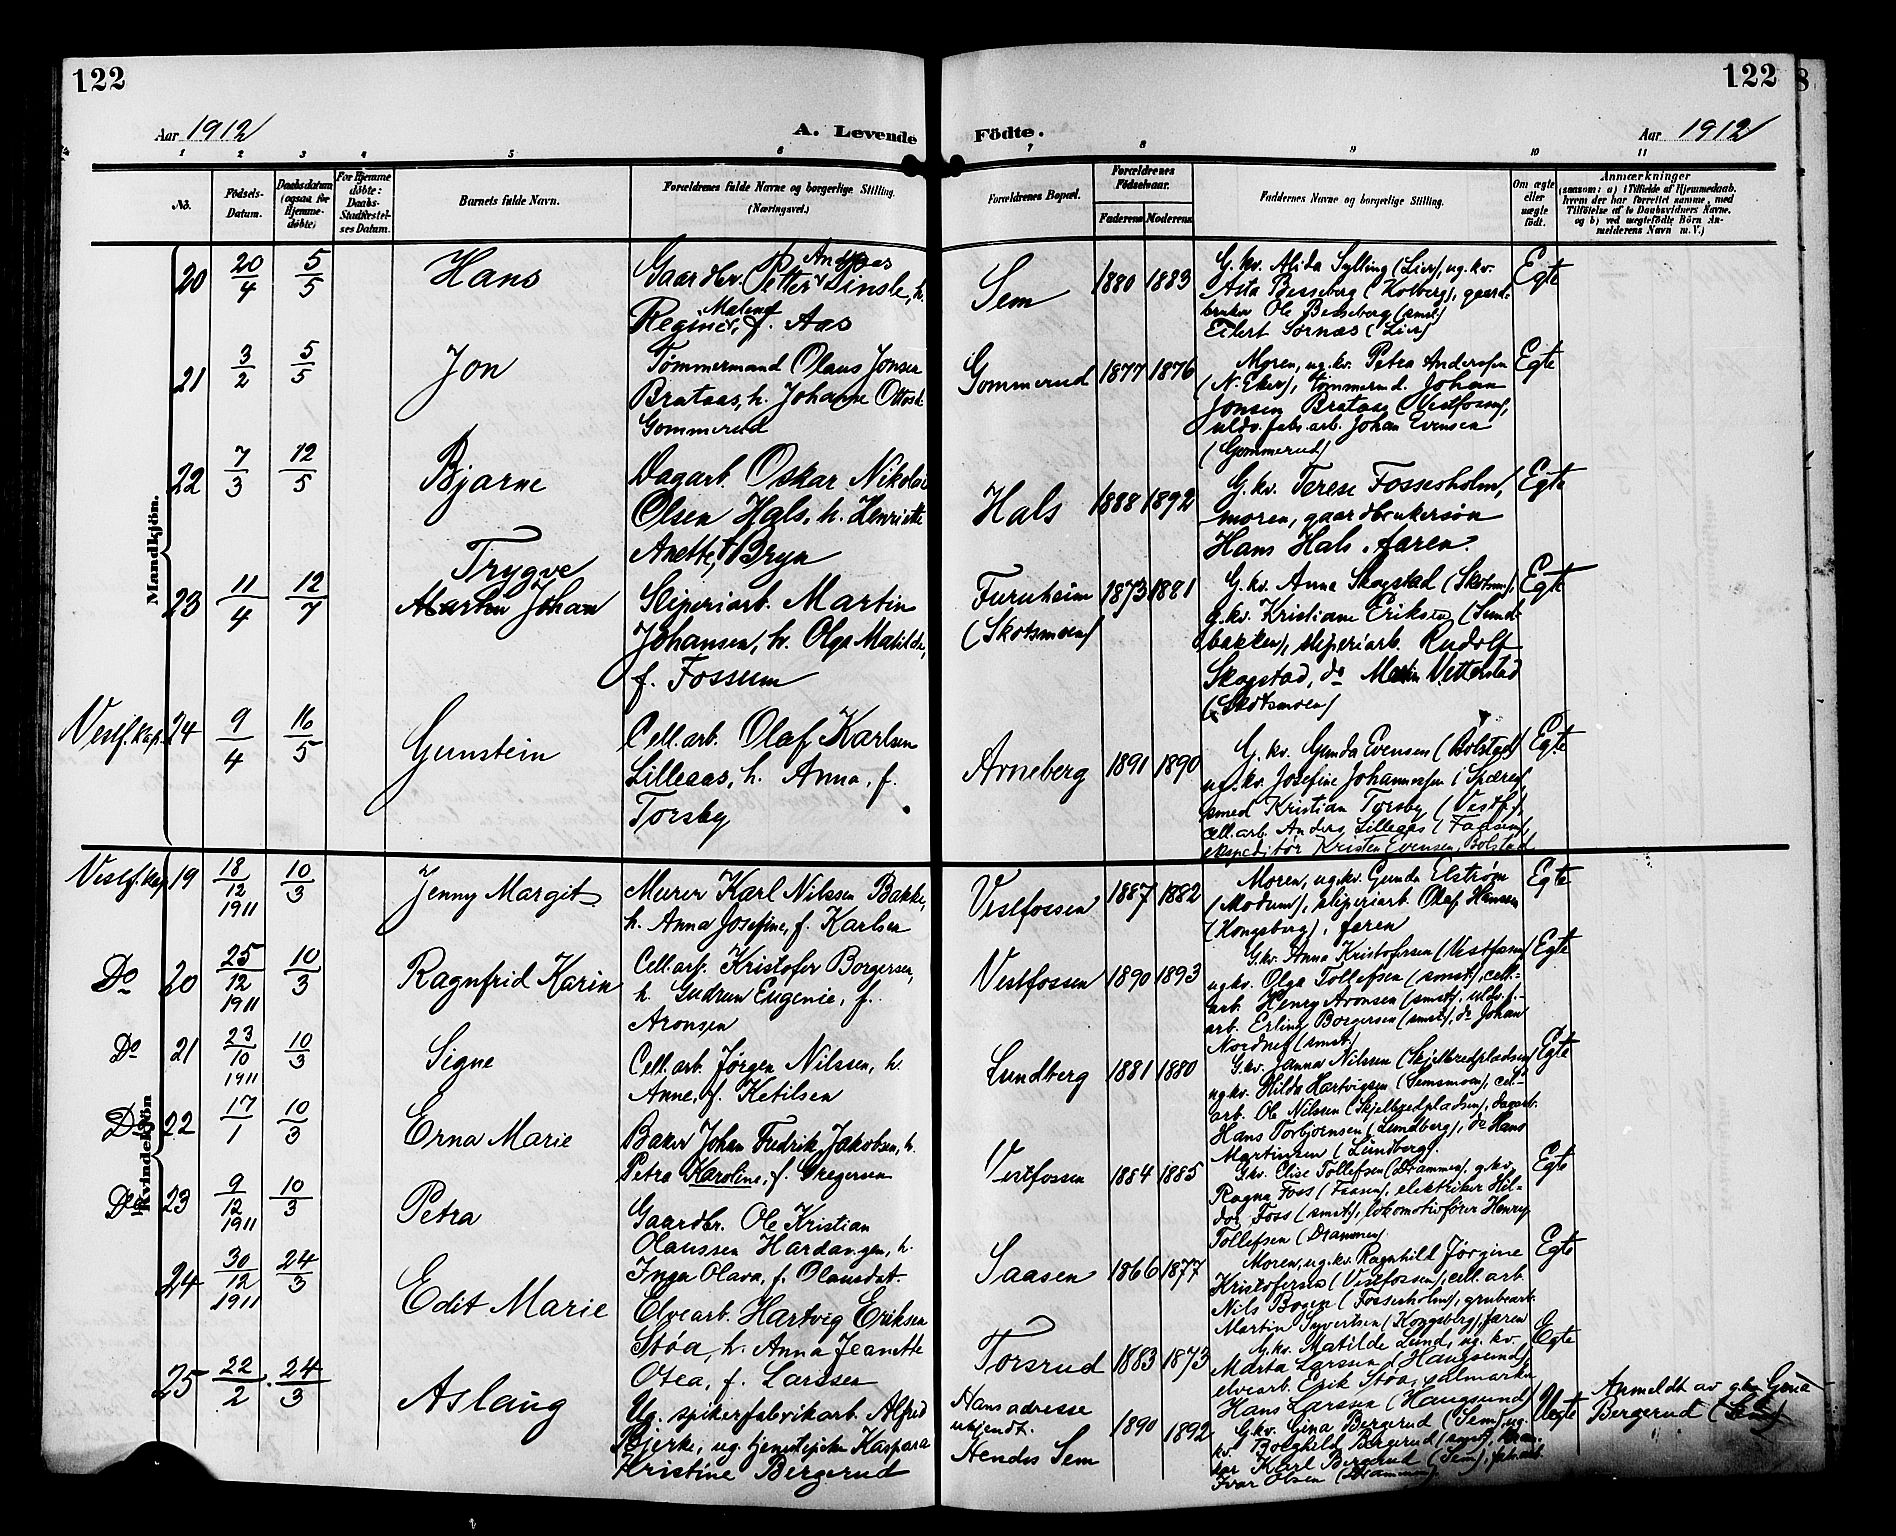 122
122
Aar 1912
A. Levende
Födte.
Aar 1912
1 2 3 4 5 6 7 8 9 10 11
No.
Födsels-
Datum.
Daabsdatum
(ogsaa for
Hjemme-
döbte)
For Hjemme
döbte:
Daabs-
Stadfæstel-
ses Datum.
Barnets fulde Navn.
Forældrenes fulde Navne og borgerlige Stilling.
(Næringsvei.)
Forældrenes Bopæl.
Forældrenes
Födselsaar.
Faderens Moderens
Faddernes Navne og borgerlige Stilling.
Om ægte
eller
uægte
födt.
Anmærkninger
(saasom: a) i Tilfælde af Hjemmedaab,
hvem der har forrettet samme, med
Tilföielse af to Daabsvidners Navne,
og b) ved uegtefödte Börn An-
melderens Navn m. V.)
Mandkjön.
20 20/4 5/5 Hans
Gaardbr. Petter Linsle, h.
Regine, f. Aas
Sem 1880 1883
G.kv. Alida Sylling (Lier), ug.kv.
Asta Besseberg (Kolberg), gaard-
bruker Ole Besseberg (smst)
Eilert Sørnæs (Lier)
Egte
21 3/2 5/5 Jon
Tømmermand Olaus Jonsen
Brataas, h. Johanne Ottosd.
Gommerud
Gommerud 1877 1876
Moren, ug.kv. Petra Andersen
(N. Eker), tømmermd. Johan
Jonsen Brataas (Vestfossen),
uldv.fabr.arb. Johan Evensen
(Gommerud)
Egte
22 7/3 12/5 Bjarne
Dagarb. Oskar Nikolai
Olsen Hals, h. Henriette
Anette, f. Bryn
Hals 1888 1892
G.kv. Terese Fossesholm,
moren, gaardbrukersøn
Hans Hals, faren.
Egte
23 11/4 12/7 Trygve
Martin Johan
Sliperiarb. Martin
Johansen, h. Olga Matilde,
f. Fossum
Furuheim
(Skotsmoen)
1873 1881
G.kv. Anna Skogstad (Skotsm.),
g.kv. Kristiane Eriksen (Sund-
bakken), sliperiarb. Rudolf
Skogstad, do Martin Vetterstad
(Skotsmoen)
Egte
Vestf. kap. 24 9/4 16/5 Gunstein
Cell.arb. Olaf Karlsen
Lilleaas, h. Anna, f.
Torsby
Arneberg 1891 1890
G.kv. Gunda Evensen (Bolstad)
ug.kv. Josefine Johannessen (Spæren),
smed Kristian Torsby (Vestf.),
cell.arb. Anders Lilleaas (Faasen),
ekspeditør Kristen Evensen, Bolstad
Egte
Kvindekjön
Vestf. kap. 19 18/12 1911 10/3 Jenny Margit
Murer Karl Nilssen Bakke,
h. Anna Josefine, f. Karlsen
Vestfossen 1887 1882
Moren, ug.kv. Gunda Elstrøm
(Modum), sliperiarb. Olaf Hanssen
(Kongsberg), faren
Egte
Do 20 25/12 1911 10/3 Ragnfrid Karin
Cell.arb. Kristofer Borgersen,
h. Gudrun Eugenie, f.
Aronsen
Vestfossen 1890 1893
G.kv. Anna Kristofersen (Vestfossen)
ug.kv. Olga Tollefsen (smst), cell.-
arb. Henry Aronsen (smst), uldv.f.-
arb. Erling Borgersen (smst), do Johan
Nordnes (smst)
Egte
Do 21 23/10 1911 10/3 Signe
Cell.arb. Jørgen Nilssen, h.
Anne, f. Ketilsen
Lundberg 1881 1880
G.kv. Janna Nilssen (Skjelbredpladsen)
ug.kv. Hilda Hartvigsen (Semsmoen), cel-
arb. Ole Nilssen (Skjelbredpladsen), dagarb.
Hans Torbjørnsen (Lundberg), do Hans
Martinsen (Lundberg).
Egte
Do 22 17/1 10/3 Erna Marie
Baker Johan Fredrik Jakobsen, h.
Petra Karoline, f. Gregersen
Vestfossen 1884 1885
G.kv. Elise Tollefsen (Drammen), g.kv.
Ragna Foss (Faasen), elektriker Hil-
dor Foss (smst), lokomotivfører Henry
Tollefsen (Drammen)
Egte
Do 23 9/12 1911 10/3 Petra
Gaardbr. Ole Kristian
Olaussen Hardangen, h.
Inga Olava, f. Olausdat.
Saasen 1866 1877
Moren, ug.kv. Ragnhild Jørgine
Kristofersen (Vestfossen), cell.arb.
Nils Bogen (Fossesholm), grubearb.
Martin Syvertsen (Kongsberg), faren
Egte
24 30/12 1911 24/3 Edit Marie
Elvearb. Hartvig Eriksen
Støa, h. Anna Jeanette
Otea, f. Larssen
Torsrud 1883 1873
G.kv. Matilde Lund, ug.kv.
Marta Larssen (Haugsund),
elvearb. Erik Støa, salmaker
Hans Larssen (Haugsund)
Egte
25 22/2 24/3 Aslaug
Ug. spikerfabrikarb. Alfred
Bjerke, ug. tjenestepike Kaspara
Kristine Bergerud
Hans adresse
ukjendt.
Hendes Sem
1890 1892
G.kv. Gina Bergerud (Sem), ug.
kv. Borghild Bergerud (smst),
Karl Bergerud (Sem),
Ivar Olsen (Drammen)
Uegte
Anmeldt av g.kv. Gina
Bergerud (Sem)